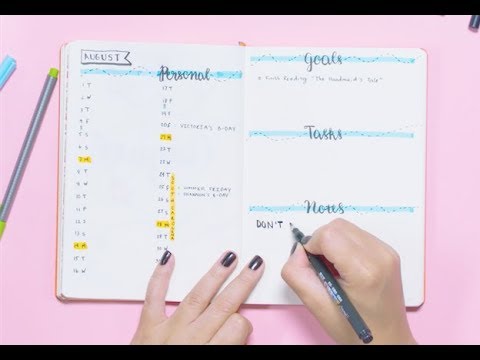 AUGUST
Personal
1 T
2 W
3 T
4 F
5 S
6 S
7 M
8 T
9 W
10 T
11 F
12 S
13 S
14 M
15 T
16 W
17 T
18 F
VICTORIA'S B-DAY
21 M
22 T
23 W
24 T
25 F - SUMMER FRIDAY
26 S - SHANNON'S B-DAY
27 S
28 M
29 T
30 W
Goals
Finish Reading "The Handmaid's Tale"
Tasks
Notes
DON'T